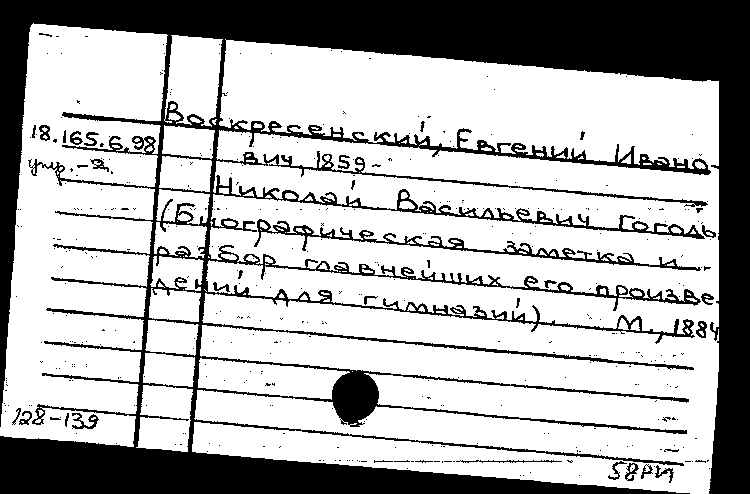 Воскресенский, Евгений Ивано-
18.165.6.98
вич, 1859-
Николай Васильевич Гоголь
(Биографическая заметка и
разбор главнейших его произве-
дений для гимназий). М., 1884
128-139